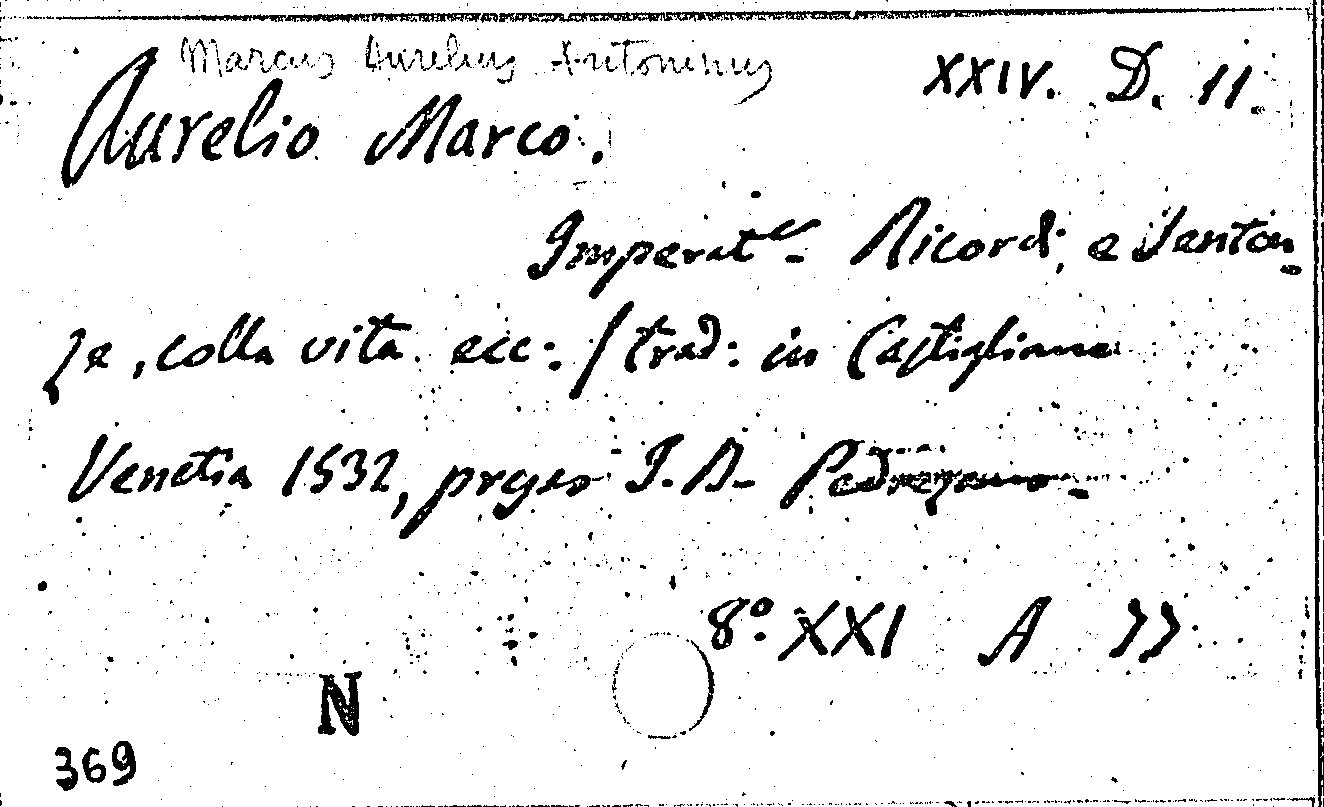 Marcus Aurelius Antoninus
XXIV. D. 11.
Aurelio Marco.
Imperat.e Ricordi, e Senten-
ze, colla vita ecc: / trad: in Castigliano
Venetia 1532, presso J. B. Pedrezano.
8º. XXI A 77
N
369